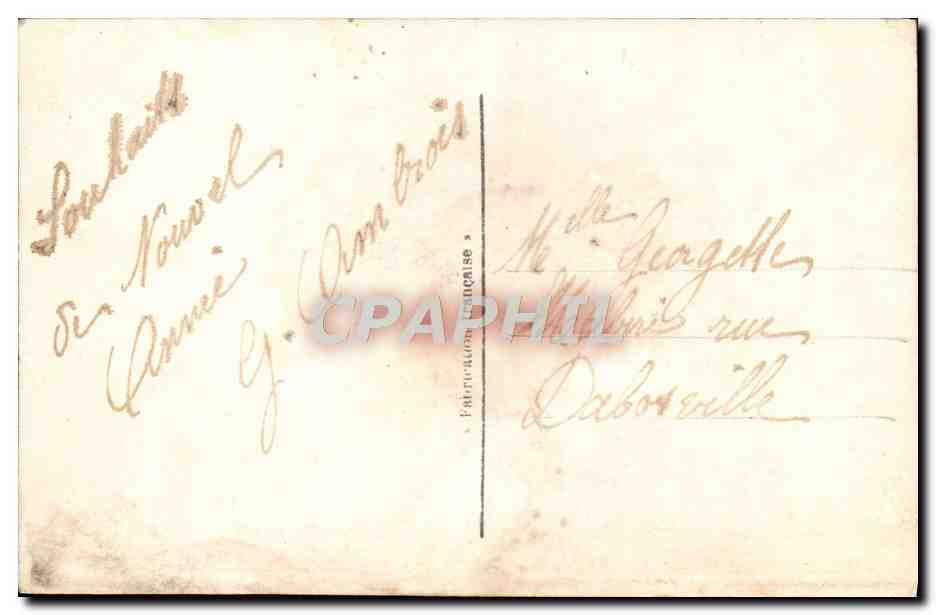 Souhaits
de Nouvel
Année
G. Ambrois
« Fabrication Française »
Melle Georgette
rue
Dabosville
CPAPHIL